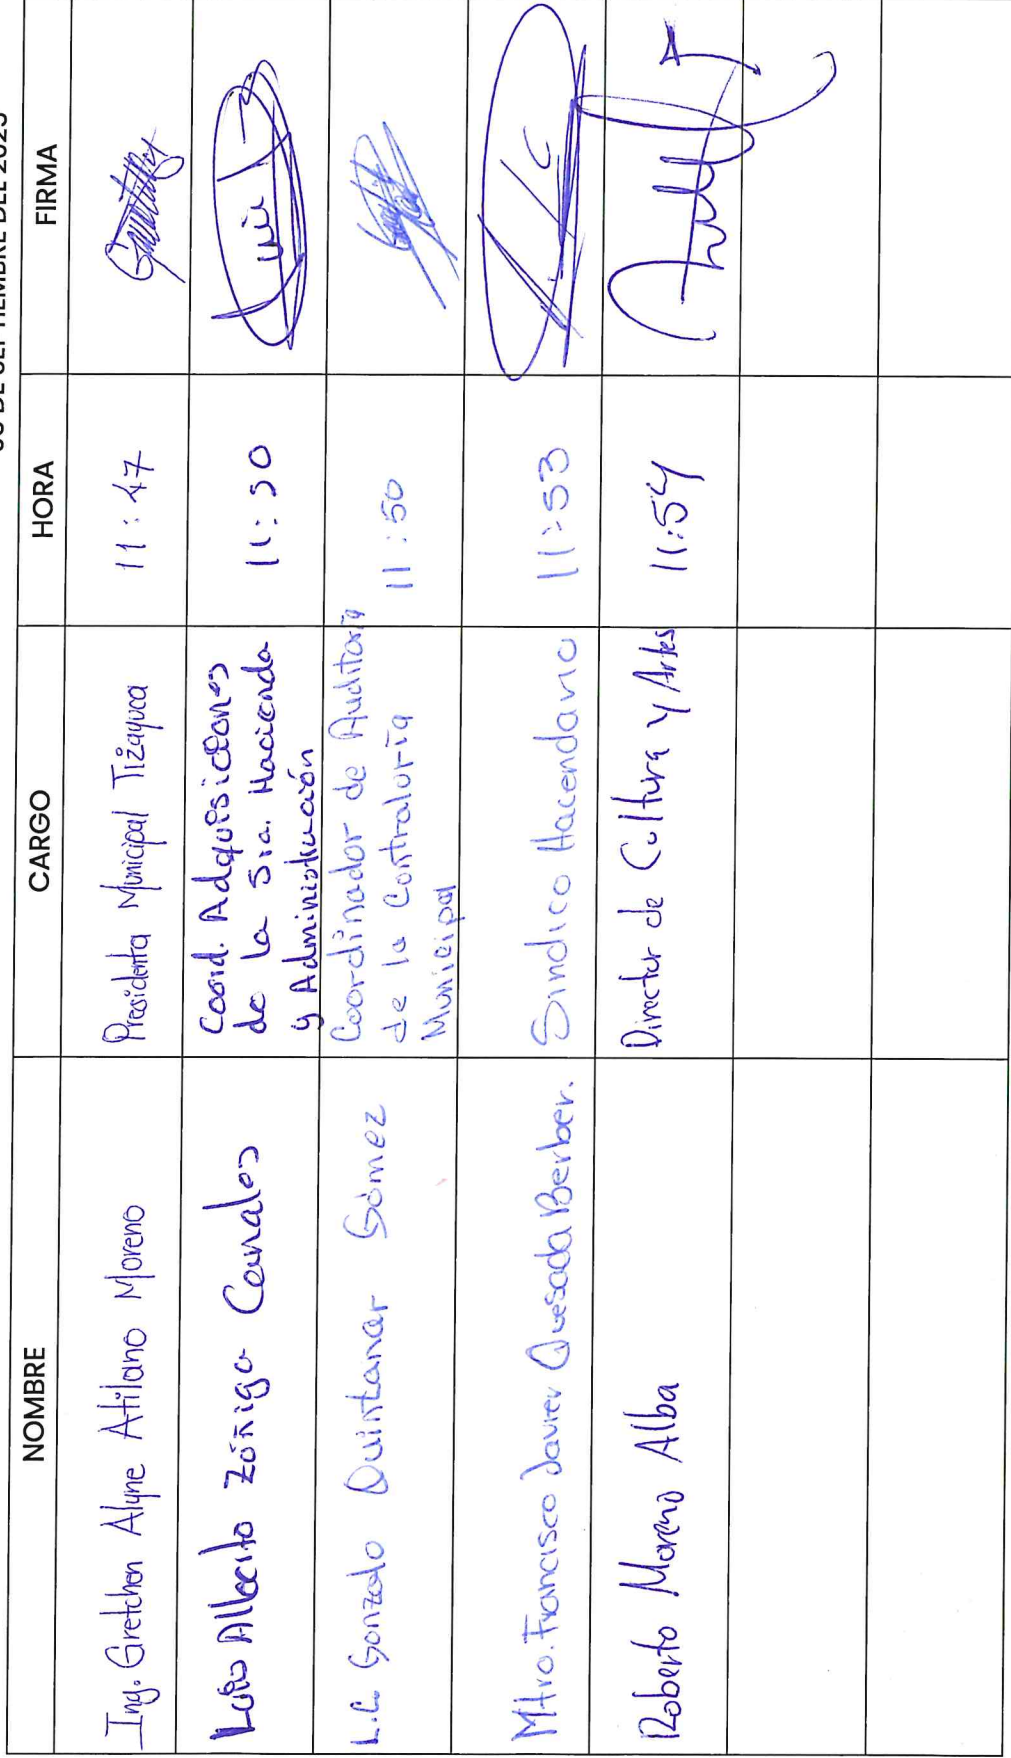 DE SEPTIEMBRE DEL 2025
NOMBRE CARGO HORA FIRMA
Ing. Gretchen Alyne Atilano Moreno Presidenta Municipal Tizayuca 11:47
Luis Alberto Zúñiga Canales Coord. Adquisiciones de la Sra. Hacienda y Administración 11:50
L.C. Gonzalo Quintanar Gómez Coordinador de Auditoría de la Contraloría Municipal 11:50
Mtro. Francisco Javier Quesada Berber. Sindico Hacendario 11:53
Roberto Moreno Alba Director de Cultura y Artes 11:54